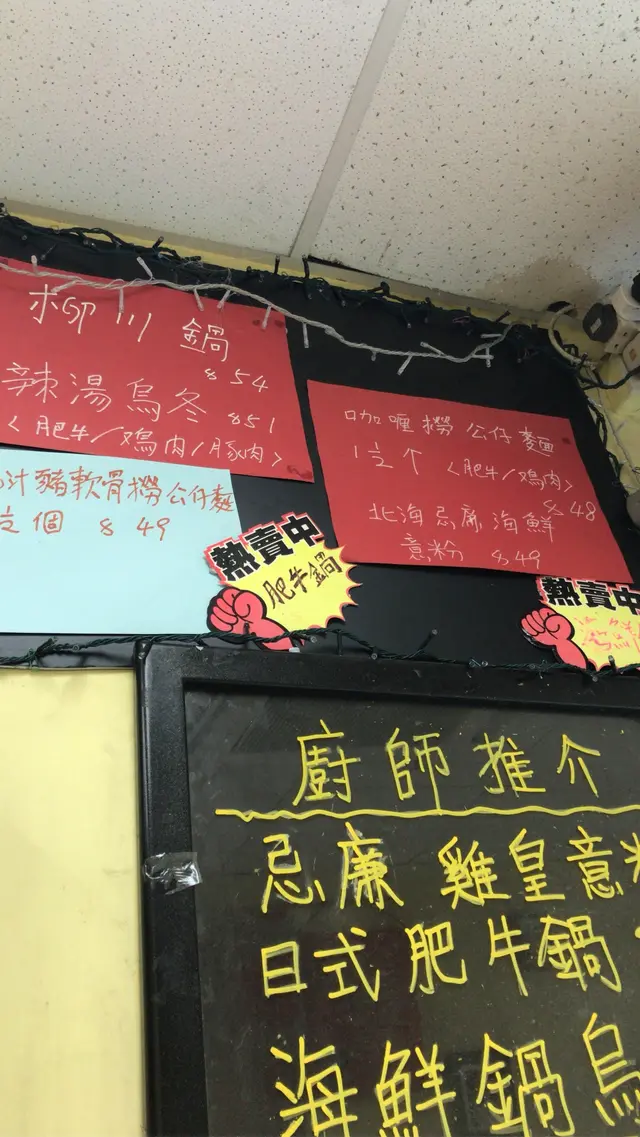 柳川鍋
$54
辣湯烏冬 $51
<肥牛/鳮肉/豚肉>
汁豬軟骨撈公仔麵
個 $49
咖喱撈公仔麵
1½个 <肥牛/鳮肉>
$48
北海忌廉海鮮
意粉 $49
熱賣中
肥牛鍋
熱賣中
廚師推介
忌廉雞皇意
日式肥牛鍋
海鮮鍋烏